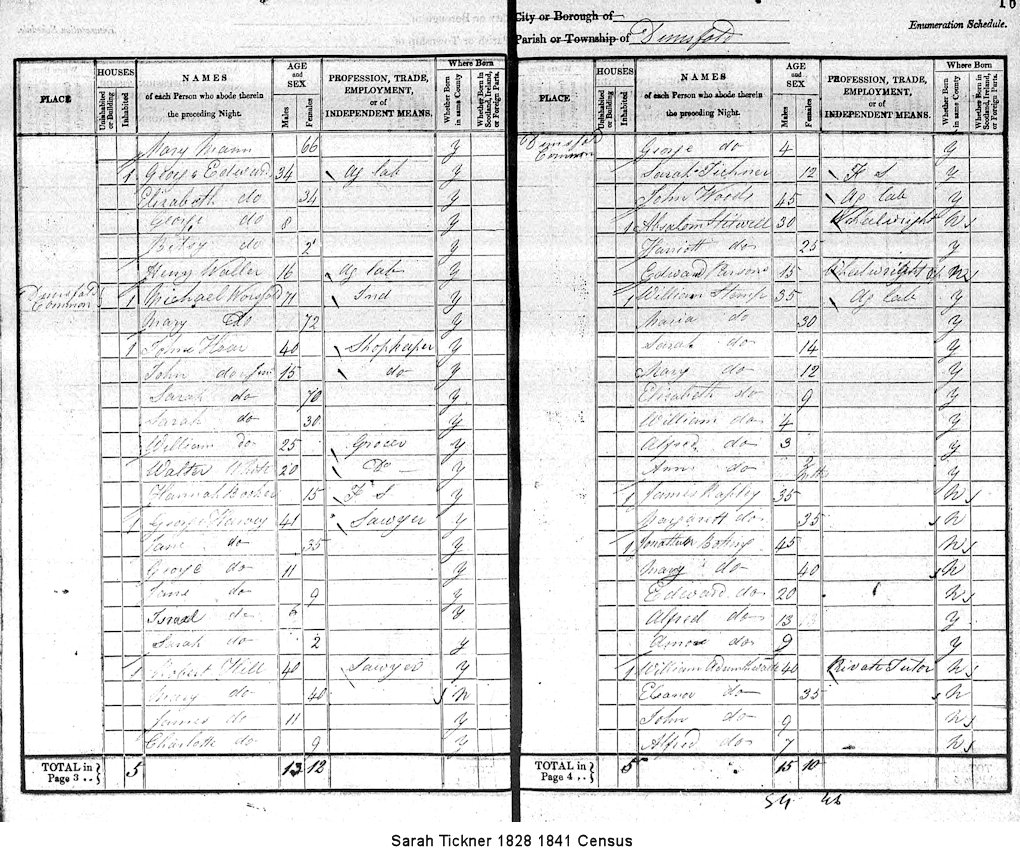 16
City or Borough of
Parish or Township of Dunsfold
Enumeration Schedule.
PLACE
HOUSES
Uninhabited or Building
Inhabited
NAMES
of each Person who abode therein
the preceding Night.
AGE
and
SEX
Males
Females
PROFESSION, TRADE,
EMPLOYMENT,
or of
INDEPENDENT MEANS.
Where Born
Whether Born in same County
Whether Born in Scotland, Ireland, or Foreign Parts.
Mary Mann 66 y
1 George Edward 34 Ag lab y
Elizabeth do 34 y
George do 8 y
Betsy do 2 y
Henry Waller 16 Ag lab y
Dunsfold Common 1 Michael Worsfold 71 Ind y
Mary Do 72 y
1 John Hoar 40 Shopkeeper y
John do Jun 15 do y
Sarah do 70 y
Sarah do 30 y
William do 25 Grocer y
Walter 20 Do y
Hannah 15 F S y
1 George 41 Sawyer y
Jane do 35 y
George do 11 y
Jane do 9 y
Israel do 6 y
Sarah do 2 y
1 Robert Hill 40 Sawyer y
Mary do 40 n
James do 11 y
Charlotte do 9 y
TOTAL in Page 3 .. 5 13 12
PLACE
HOUSES
Uninhabited or Building
Inhabited
NAMES
of each Person who abode therein
the preceding Night.
AGE
and
SEX
Males
Females
PROFESSION, TRADE,
EMPLOYMENT,
or of
INDEPENDENT MEANS.
Where Born
Whether Born in same County
Whether Born in Scotland, Ireland, or Foreign Parts.
Dunsfold Common George do 4 y
Sarah Tickner 12 F S y
John Woods 45 Ag lab y
1 Absalom Stilwell 30 Wheelwright N
Harriott do 25 y
Edward Parsons 15 Wheelwright N
1 William 35 Ag lab y
Maria do 30 y
Sarah do 14 y
Mary do 12 y
Elizabeth do 9 y
William do 4 y
Alfred do 3 y
Ann do 9 Mths y
1 James Rapley 35 N
Margarett do 35 N
1 Jonathan 45 N
Mary do 40 N
Edward do 20 N
Alfred do 13 y
Amos do 9 y
1 William 40 Private Tutor N
Eleanor do 35 N
John do 9 N
Alfred do 7 N
TOTAL in Page 4 .. 5 15 10
Sarah Tickner 1828 1841 Census